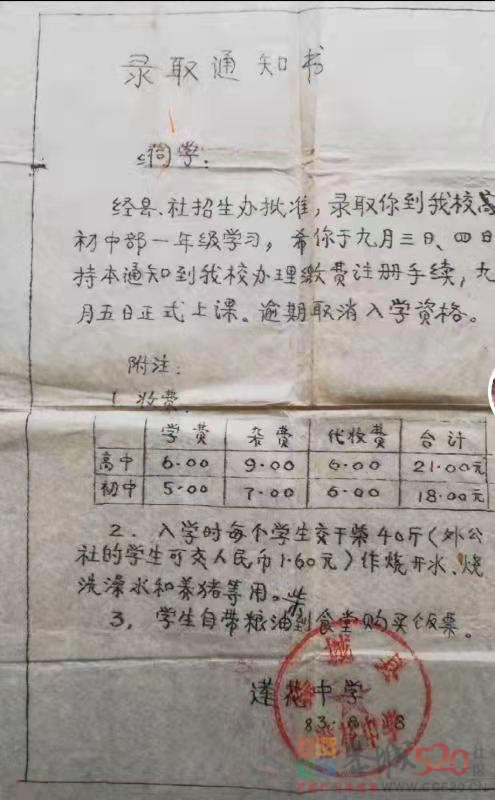 录取通知书
同学：
经县、社招生办批准，录取你到我校高
初中部一年级学习，希你于九月三日、四日
持本通知到我校办理缴费注册手续，九
月五日正式上课。逾期取消入学资格。
附注：
1 收费：
学费 杂费 代收费 合计
高中 6.00 9.00 6.00 21.00元
初中 5.00 7.00 6.00 18.00元
2. 入学时每个学生交干柴40斤（外公
社的学生可交人民币1.60元）作烧开水、烧
洗澡水和养猪等用。
柴
3. 学生自带粮油到食堂购买饭票。
莲花中学
83. 8. 8
花中学
520
社区
WWW.CG520.CN